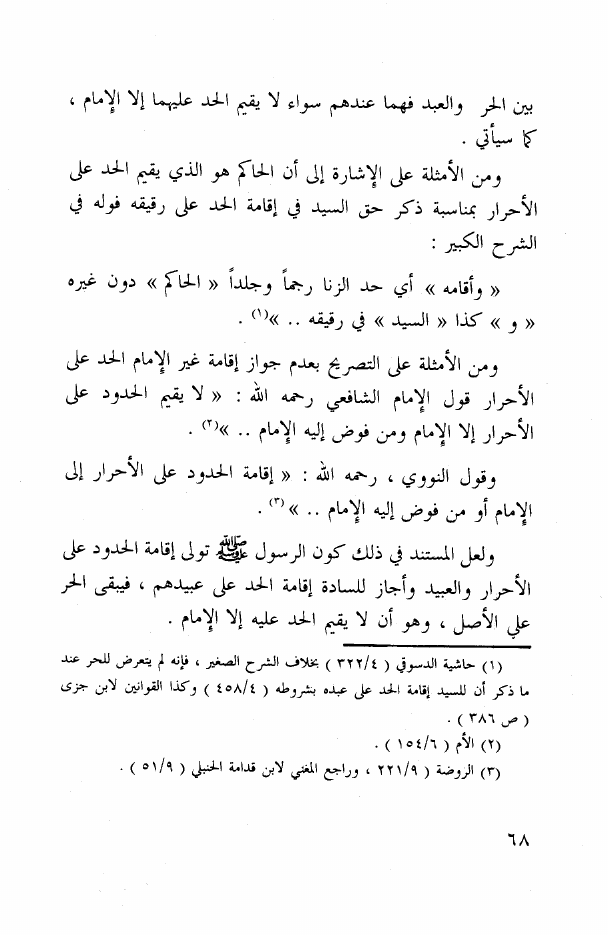 بين الحر والعبد فهما عندهم سواء لا يقيم الحد عليهما إلا الإمام ،
كما سيأتي .
ومن الأمثلة على الإشارة إلى أن الحاكم هو الذي يقيم الحد على
الأحرار بمناسبة ذكر حق السيد في إقامة الحد على رقيقه قوله في
الشرح الكبير :
« وأقامه » أي حد الزنا رجماً وجلداً « الحاكم » دون غيره
« و » كذا « السيد » في رقيقه .. »(١) .
ومن الأمثلة على التصريح بعدم جواز إقامة غير الإمام الحد على
الأحرار قول الإمام الشافعي رحمه الله : « لا يقيم الحدود على
الأحرار إلا الإمام ومن فوض إليه الإمام .. »(٢) .
وقول النووي ، رحمه الله : « إقامة الحدود على الأحرار إلى
الإمام أو من فوض إليه الإمام .. »(٣) .
ولعل المستند في ذلك كون الرسول ﷺ تولى إقامة الحدود على
الأحرار والعبيد وأجاز للسادة إقامة الحد على عبيدهم ، فيبقى الحر
على الأصل ، وهو أن لا يقيم الحد عليه إلا الإمام .
(١) حاشية الدسوقي ( ٣٢٢/٤ ) بخلاف الشرح الصغير ، فإنه لم يتعرض للحر عند
ما ذكر أن للسيد إقامة الحد على عبده بشروطه ( ٤٥٨/٤ ) وكذا القوانين لابن جزى
( ص ٣٨٦ ) .
(٢) الأم ( ١٥٤/٦ ) .
(٣) الروضة ( ٢٢١/٩ ، وراجع المغني لابن قدامة الحنبلي ( ٥١/٩ ) .
٦٨